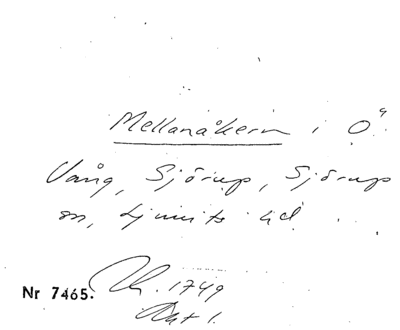 Mellanåkern i Ö
Vång, Sjörup, Sjörup
sn, Ljunits hd.
1749
Akt 1.
Nr 7465.